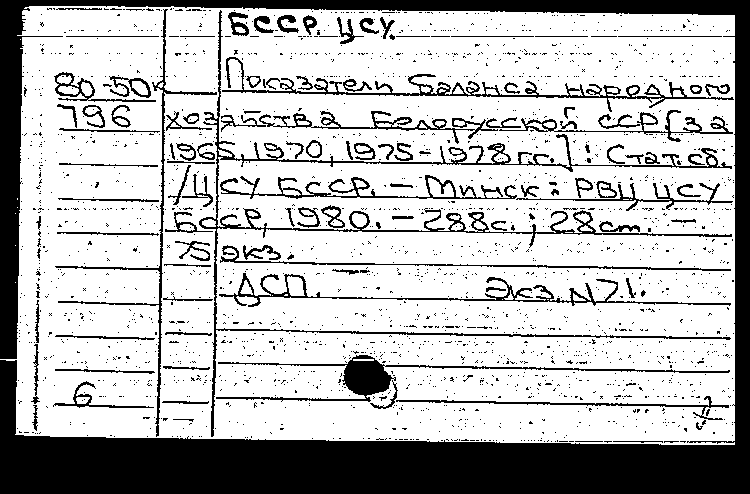 БССР. ЦСУ.
80-50к Показатели баланса народного
796 хозяйства Белорусской ССР [за
1965, 1970, 1975-1978 гг.] : Стат. сб.
/ЦСУ БССР. - Минск : РВЦ ЦСУ
БССР, 1980. - 288с. ; 28см. -
75 экз.
ДСП. Экз. N71.
6